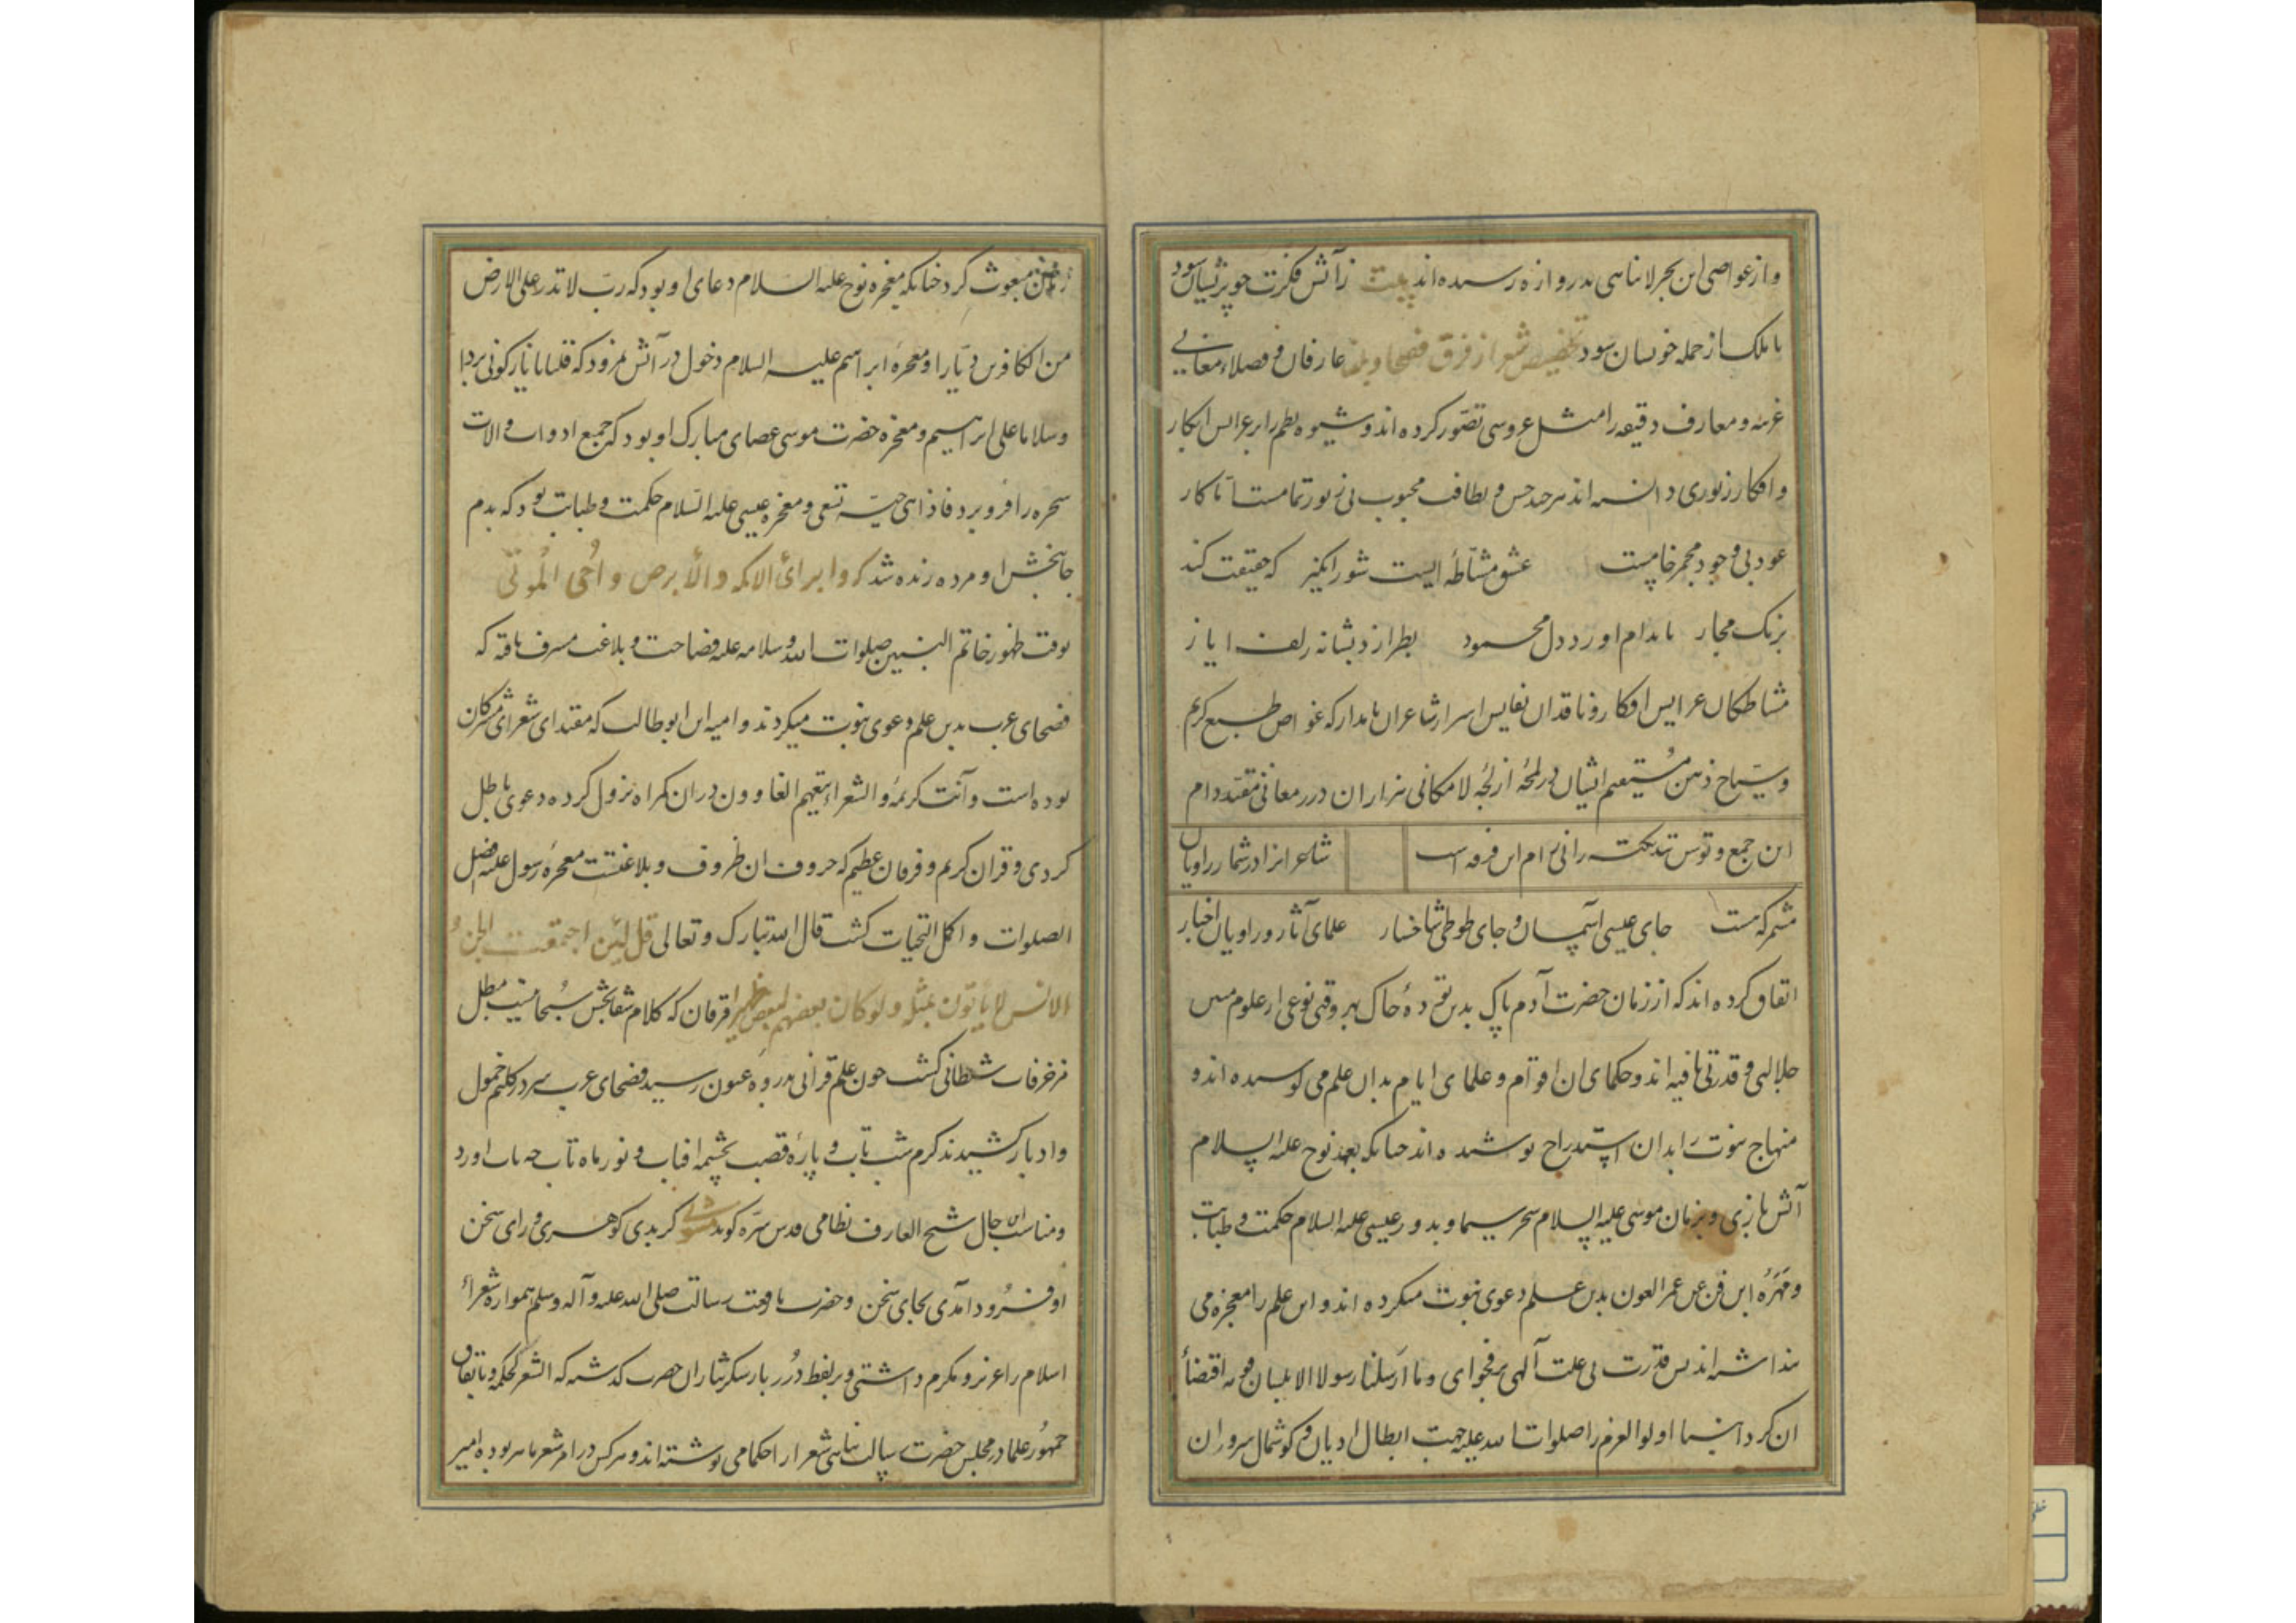 و از غواصی این بحر لا تناهی بدروازه رسیده‌اند بیت ز آتش فکرت چو پریشان شود
با ملک از جمله خویشان شود تخصیص شعرا از فرق فصحا و بلغا عارفان و فضلاء معانی
غریبه و معارف دقیقه را مثل عروسی تصور کرده‌اند و شیوه نظم را بر عرایس ابکار
و افکار زیوری دانسته‌اند هر چند حسن و لطافت محبوب بی زیور تمامست اما کار
عود بی وجود مجمر خامست عشق مشاطهٔ ایست شورانگیز که حقیقت کند
برنک مجاز تا بدام اورد دل محمود بطرازد بشانه زلف ایاز
مشاطکان عرایس افکار و ناقدان نفایس اسرار شاعران نامدار که غواص طبع کریم
و سیاح ذهن مستقیم ایشان در لمحهٔ از لجهٔ لامکانی هزاران درر معانی مقید دام
این جمع و توسن تند نکته رانی رام این فرقه است شاعرانرا در شمار راویان
مشمر که هست جای عیسی آسمان و جای طوطی شاخسار علمای آثار و راویان اخبار
اتفاق کرده‌اند که از زمان حضرت آدم پاک بدین تودهٔ خاک بهر وقتی نوعی از علوم میں
جلالی و قدرتی یافته‌اند و حکمای ان اقوام و علمای ایام بدان علم می کوشیده‌اند و
منهاج نبوت را بدان استدراج پوشیده‌اند چنانکه بعهد نوح علیه السلام
آتش بازی و بزمان موسی علیه السلام سحر سیما و بدور عیسی علیه السلام حکمت و طبابت
و مهرهٔ این فن عین عمر العون بدین علم دعوی نبوت میکرده‌اند و این علم را معجزه می
پنداشته‌اند پس قدرت بی علت آلهی بر فحوای و ما ارسلنا رسولا الا بلسان قومه اقتضاء
ان کرد انبیا اولوالعزم را صلوات الله علیه جهت ابطال ادیان و کوشمال سروران
زمین مبعوث کرد چنانکه معجزه نوح علیه السلام دعای او بود که رب لا تذر علی الارض
من الکافرین دیارا و معجزهٔ ابراهیم علیه السلام دخول در آتش نمرود که قلنا یا نار کونی بردا
و سلاما علی ابراهیم و معجزه حضرت موسی عصای مبارک او بود که جمیع ادوات و الات
سحره را فرو برد فاذا هی حیة تسعی و معجزه عیسی علیه السلام حکمت و طبابت بود که بدم
جانبخش او مرده زنده شد که و ابرائ الاکمه و الأبرص و أحی الموتی
بوقت ظهور خاتم النبیین صلوات الله و سلامه علیه فصاحت و بلاغت شرف یافته که
فصحای عرب بدین علم دعوی نبوت میکردند و امیه ابن ابو طالب که مقتدای شعرای مشرکان
بوده است و آیت کریمهٔ والشعراء یتبعهم الغاوون در ان کمراه نزول کرده دعوی باطل
کردی و قران کریم و فرقان عظیم که حروف ان ظروف و بلاغتست معجزهٔ رسول علیه افضل
الصلوات و اکمل التحیات کشت قال الله تبارک و تعالی قل لئن اجتمعت الجن و
الانس لا یأتون بمثله ولو کان بعضهم لبعض ظهیرا فرقان که کلام شفابخش سبحانیست مبطل
مزخرفات شیطانی کشت چون علم قرانی بذروه عیون رسید فصحای عرب سر در کلیم خمول
و ادبار کشیدند کرم شب تاب و پارهٔ قصب بچشمه افتاب و نور ماه تاب چه تاب اورد
و مناسب این حال شیخ العارف نظامی قدس سره کوید مثنوی کر بدی کوهری ورای سخن
او فرود آمدی بجای سخن و حضرت با رفعت رسالت صلی الله علیه و آله و سلم همواره شعراء
اسلام را عزیز و مکرم داشتی و بر لفظ دُرر بار شکر نثار ان حضرت کذشته که الشعر لحکمة و باتفاق
جمهور علما در مجلس حضرت رسالت پناهی شعرا را حکمامی نوشته‌اند و هر کس در امر شعر ماهر بوده امیر